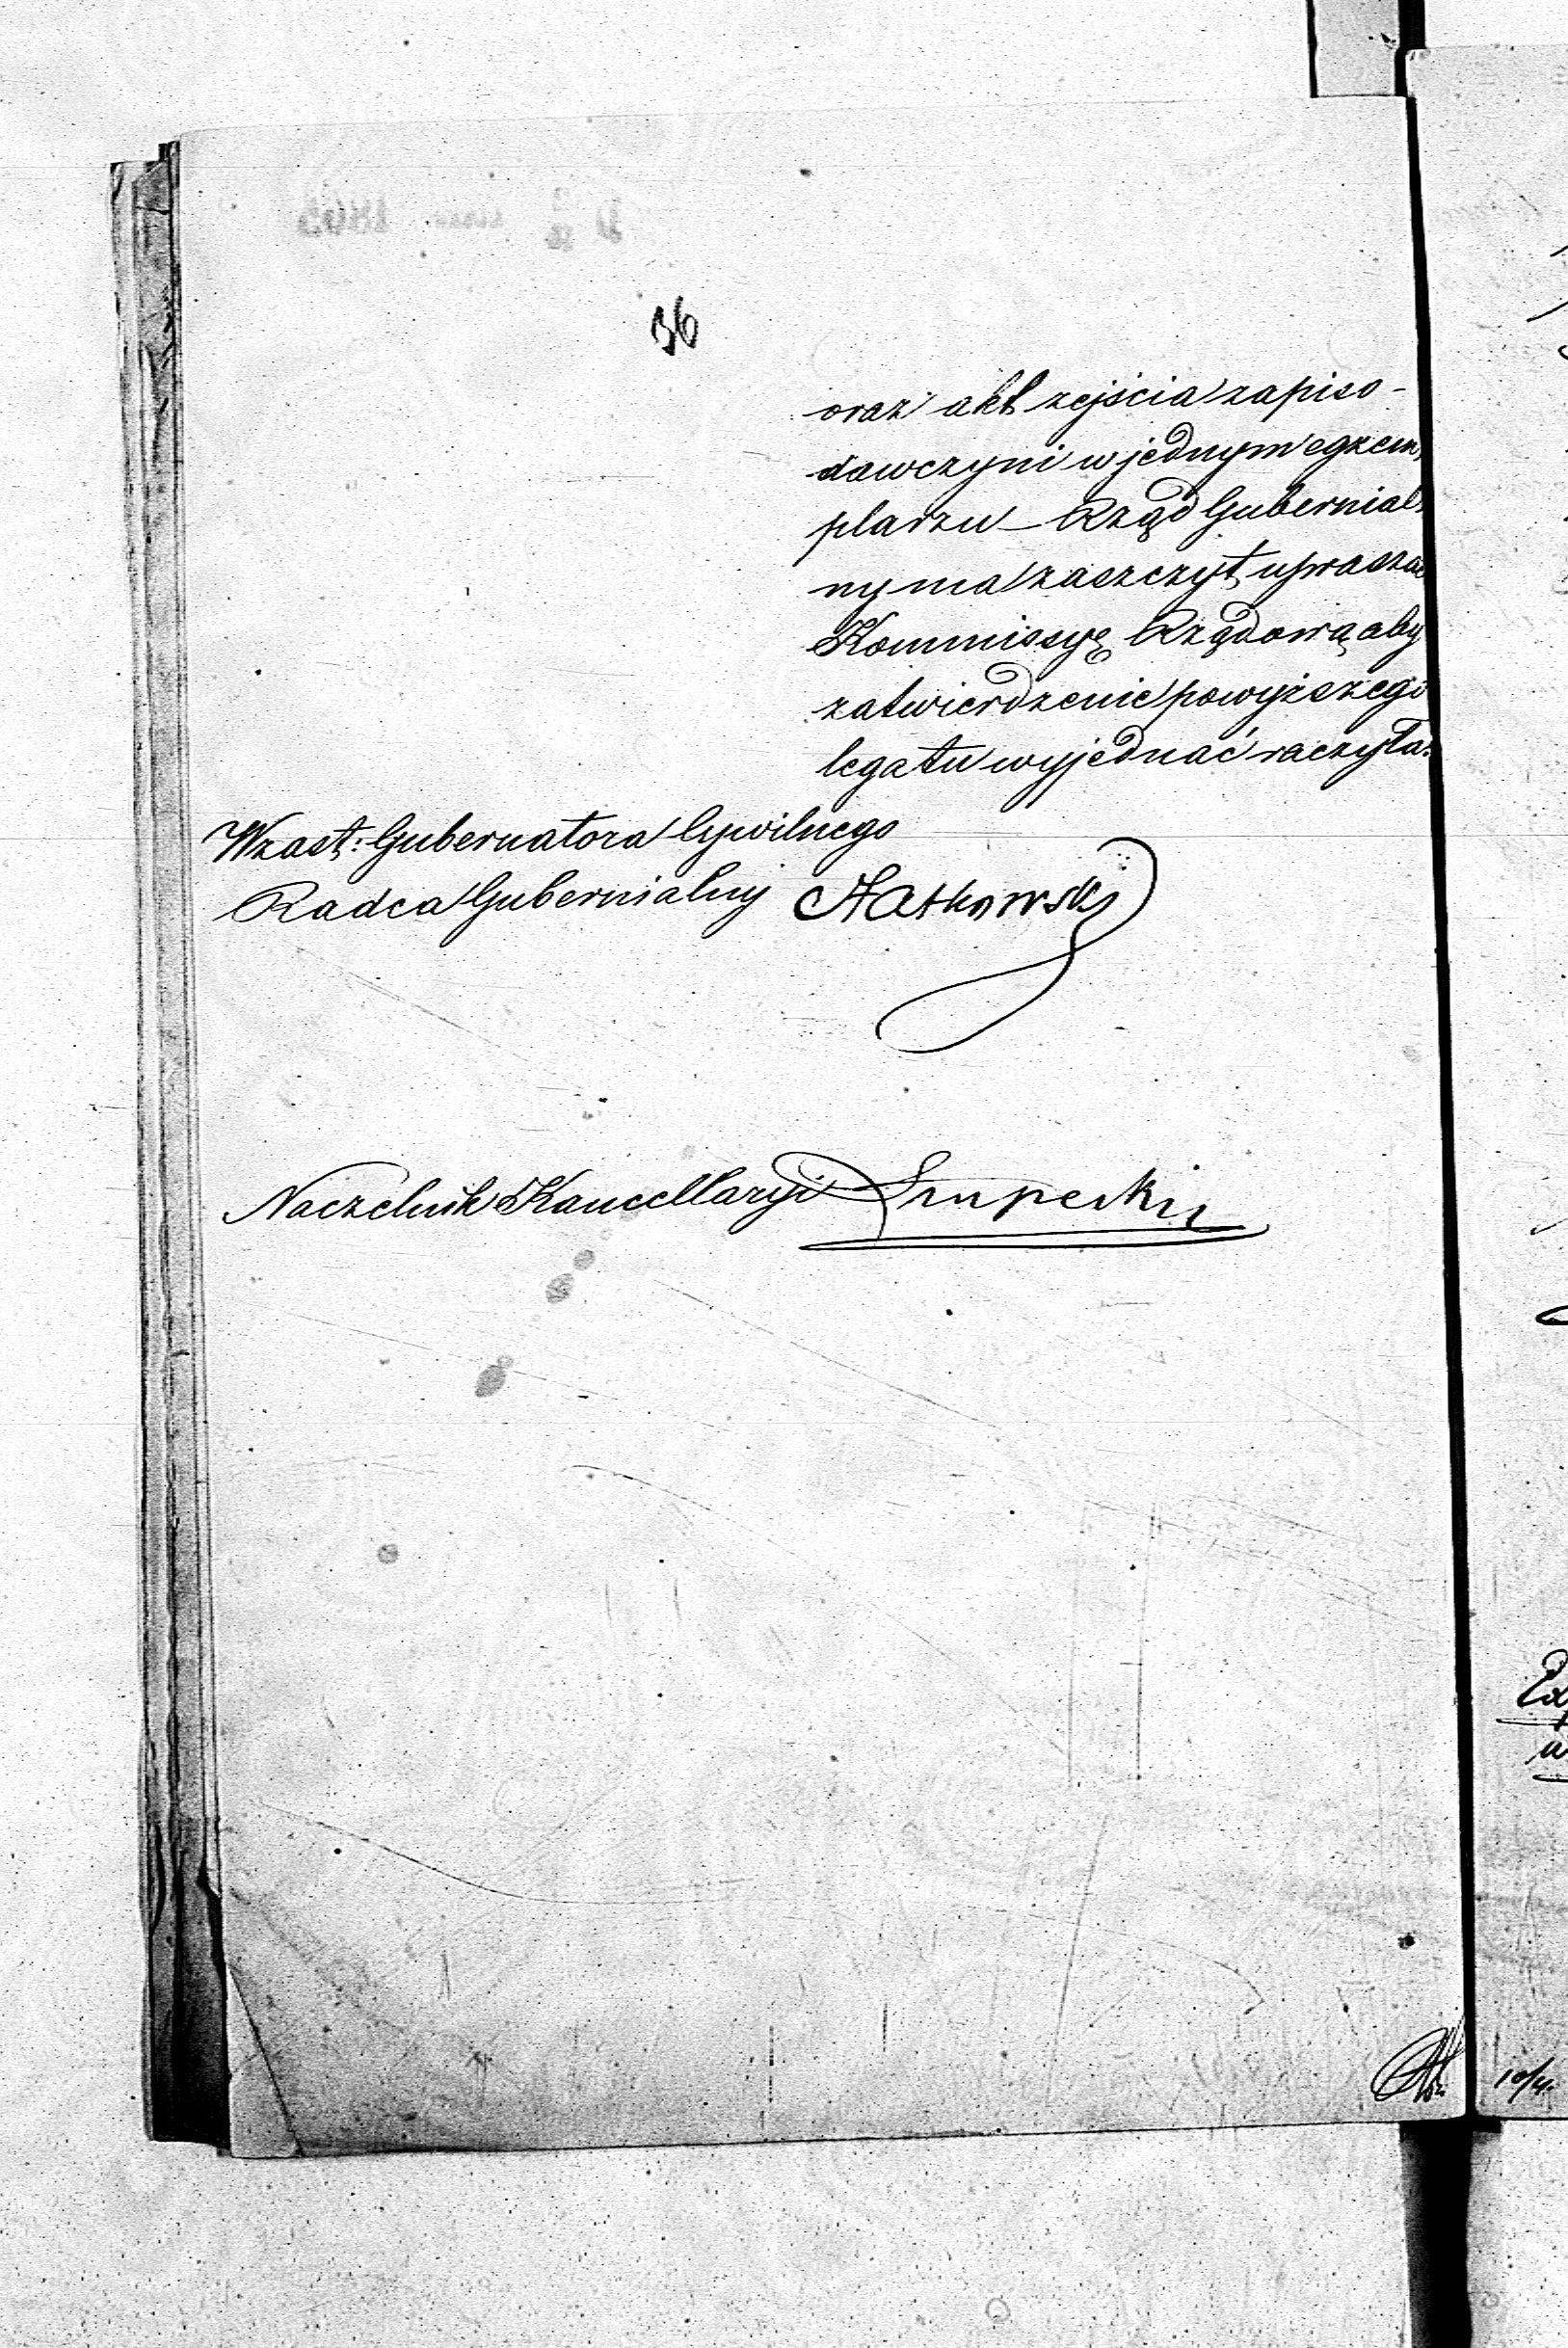 36
oraz akt zejścia zapiso-
dawczyni w jednym egzem,
plarzu — Rząd Gubernial,
ny ma zaszczyt upraszać
Kommissyę Rządową aby
zatwierdzenie powyższego
legatu wyjednać raczyła.
W zast: Gubernatora Cywilnego
Radca Gubernialny
Naczelnik Kancellaryi
10/4.